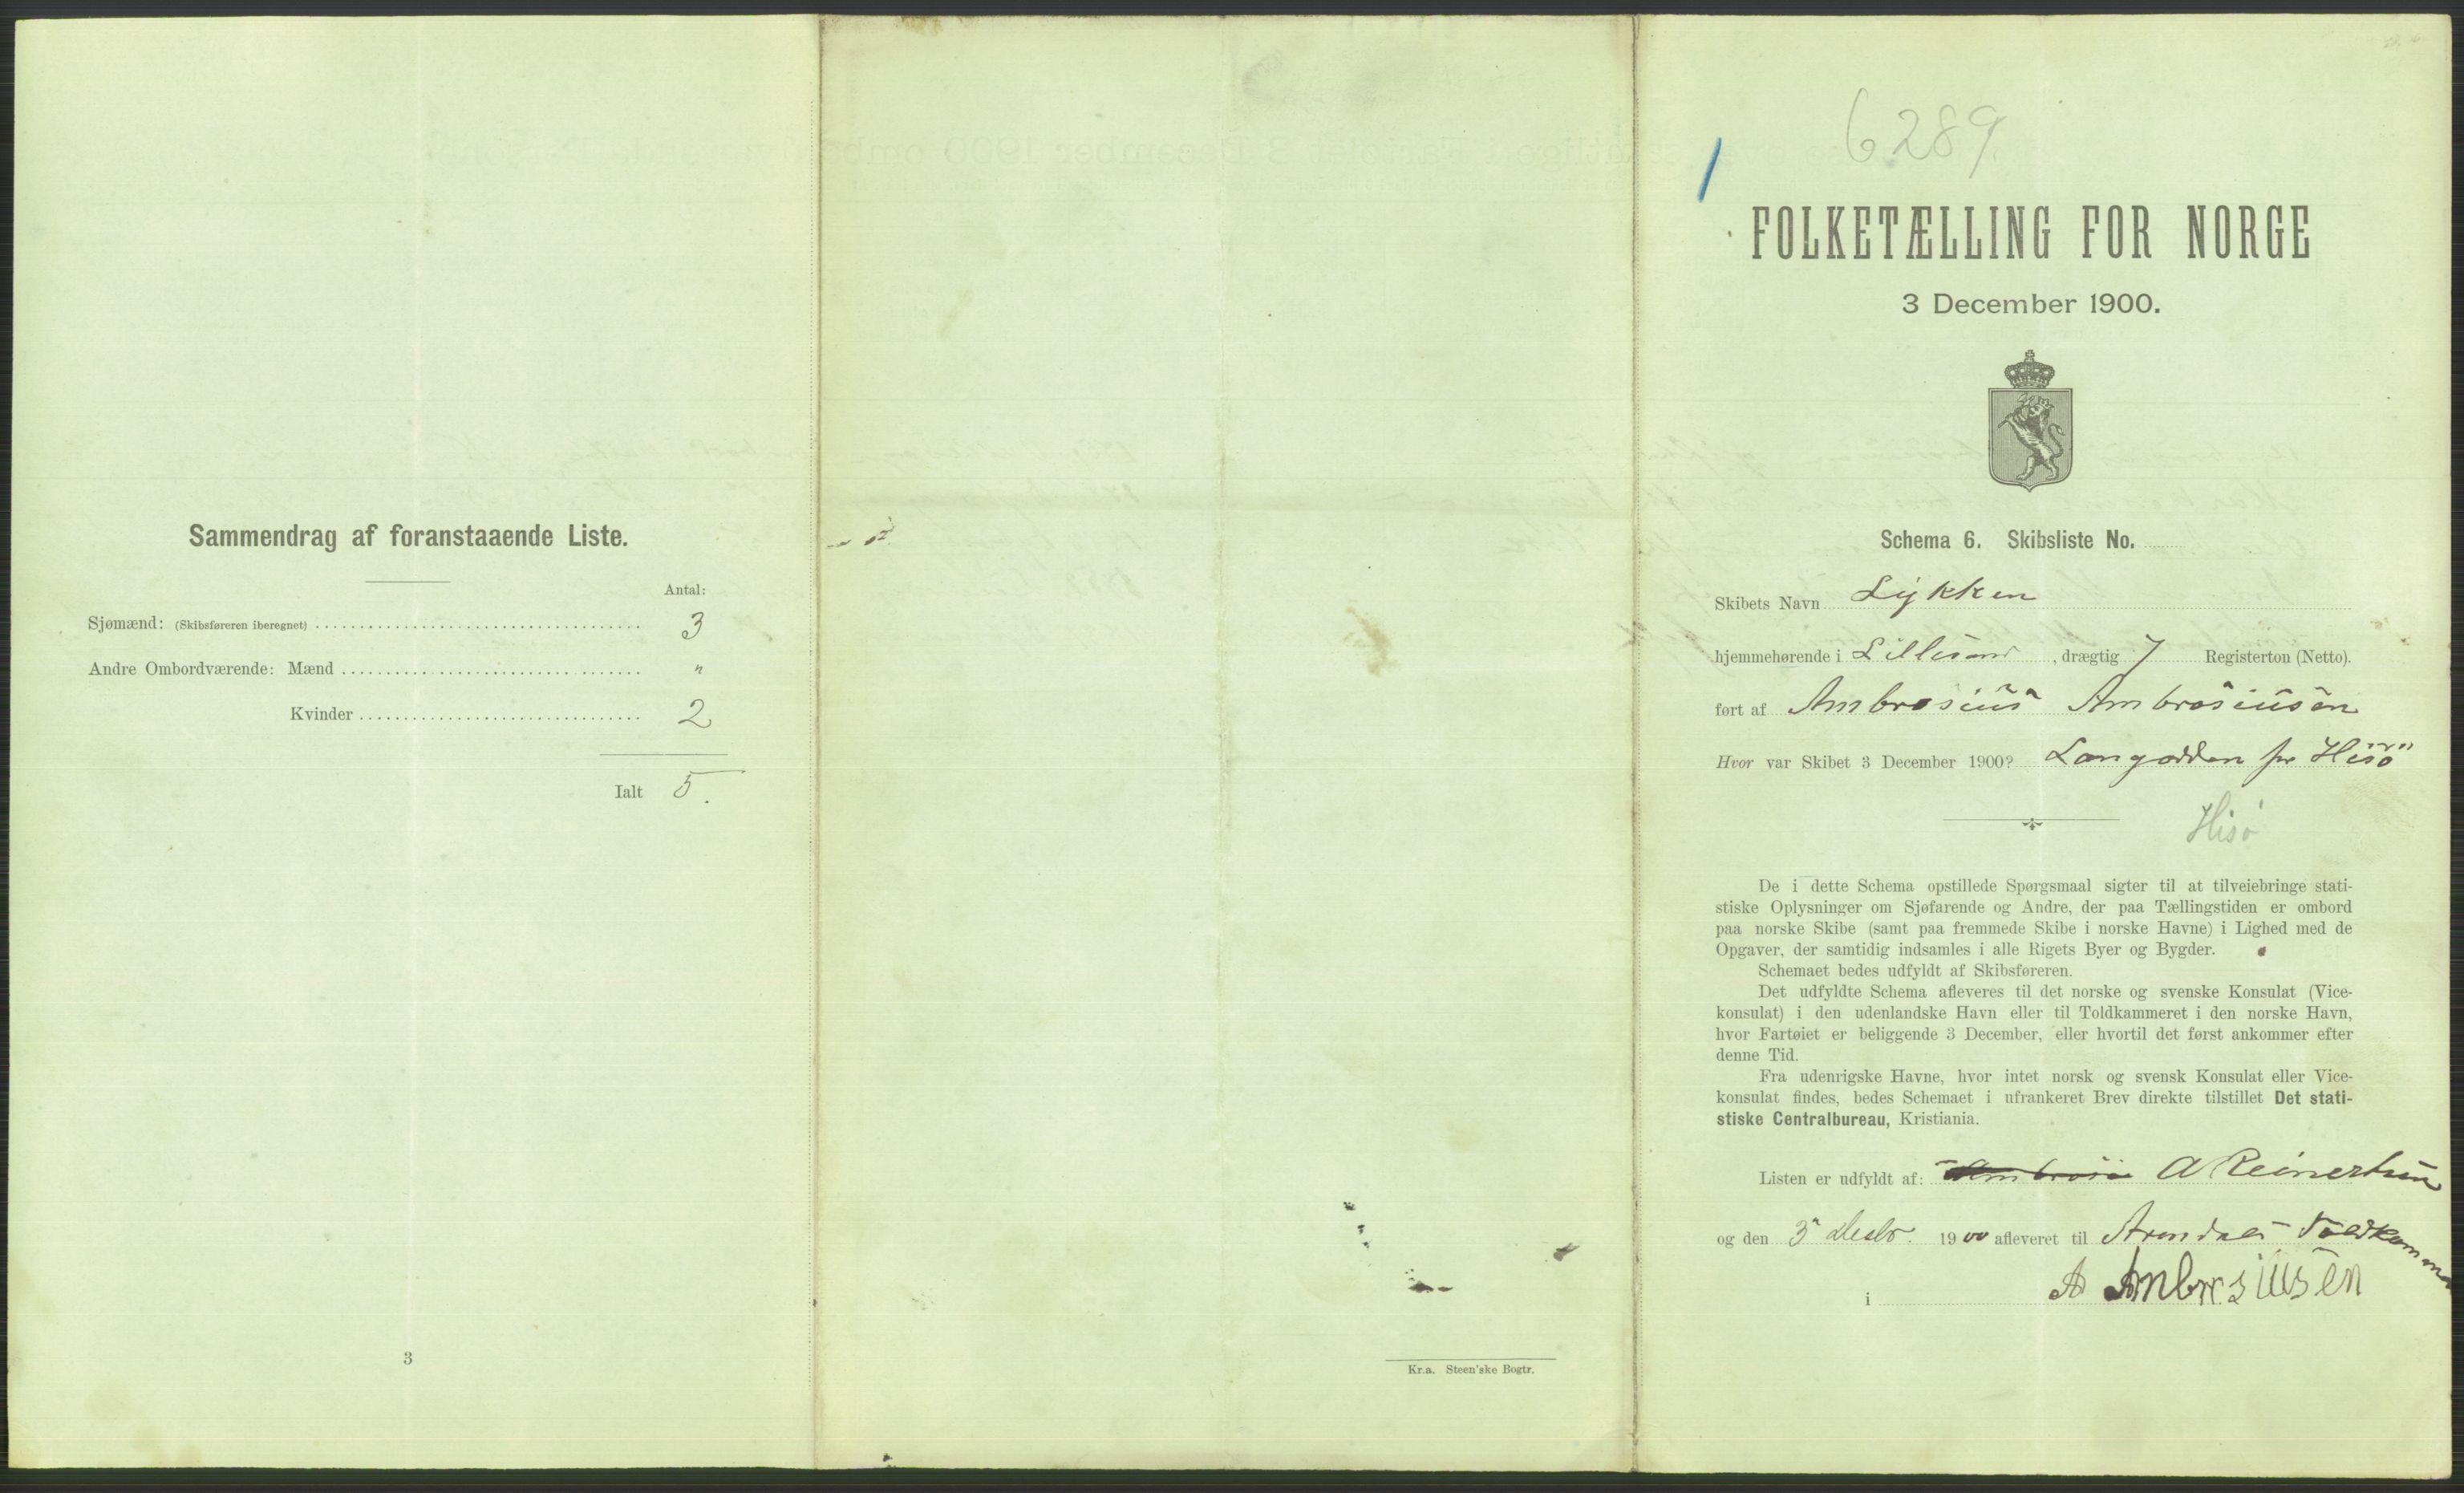 Sammendrag af foranstaaende Liste.
Antal:
Sjømænd: (Skibsføreren iberegnet) 3
Andre Ombordværende: Mænd "
Kvinder 2
Ialt 5.
3
Kr.a. Steen'ske Bogtr.
6289
FOLKETÆLLING FOR NORGE
3 December 1900.
Schema 6. Skibsliste No.
Skibets Navn Lykken
hjemmehørende i Lillesand, drægtig 7 Registerton (Netto).
ført af Ambrosius Ambrosiusen
Hvor var Skibet 3 December 1900? Langodden pr Hisö
Hisø
De i dette Schema opstillede Spørgsmaal sigter til at tilveiebringe stati-
stiske Oplysninger om Sjøfarende og Andre, der paa Tællingstiden er ombord
paa norske Skibe (samt paa fremmede Skibe i norske Havne) i Lighed med de
Opgaver, der samtidig indsamles i alle Rigets Byer og Bygder.
Schemaet bedes udfyldt af Skibsføreren.
Det udfyldte Schema afleveres til det norske og svenske Konsulat (Vice-
konsulat) i den udenlandske Havn eller til Toldkammeret i den norske Havn,
hvor Fartøiet er beliggende 3 December, eller hvortil det først ankommer efter
denne Tid.
Fra udenrigske Havne, hvor intet norsk og svensk Konsulat eller Vice-
konsulat findes, bedes Schemaet i ufrankeret Brev direkte tilstillet Det stati-
stiske Centralbureau, Kristiania.
Listen er udfyldt af: A Reinertsen
og den 3 Decbr. 1900 afleveret til Arendals Toldkammer
i A Ambrosiusen